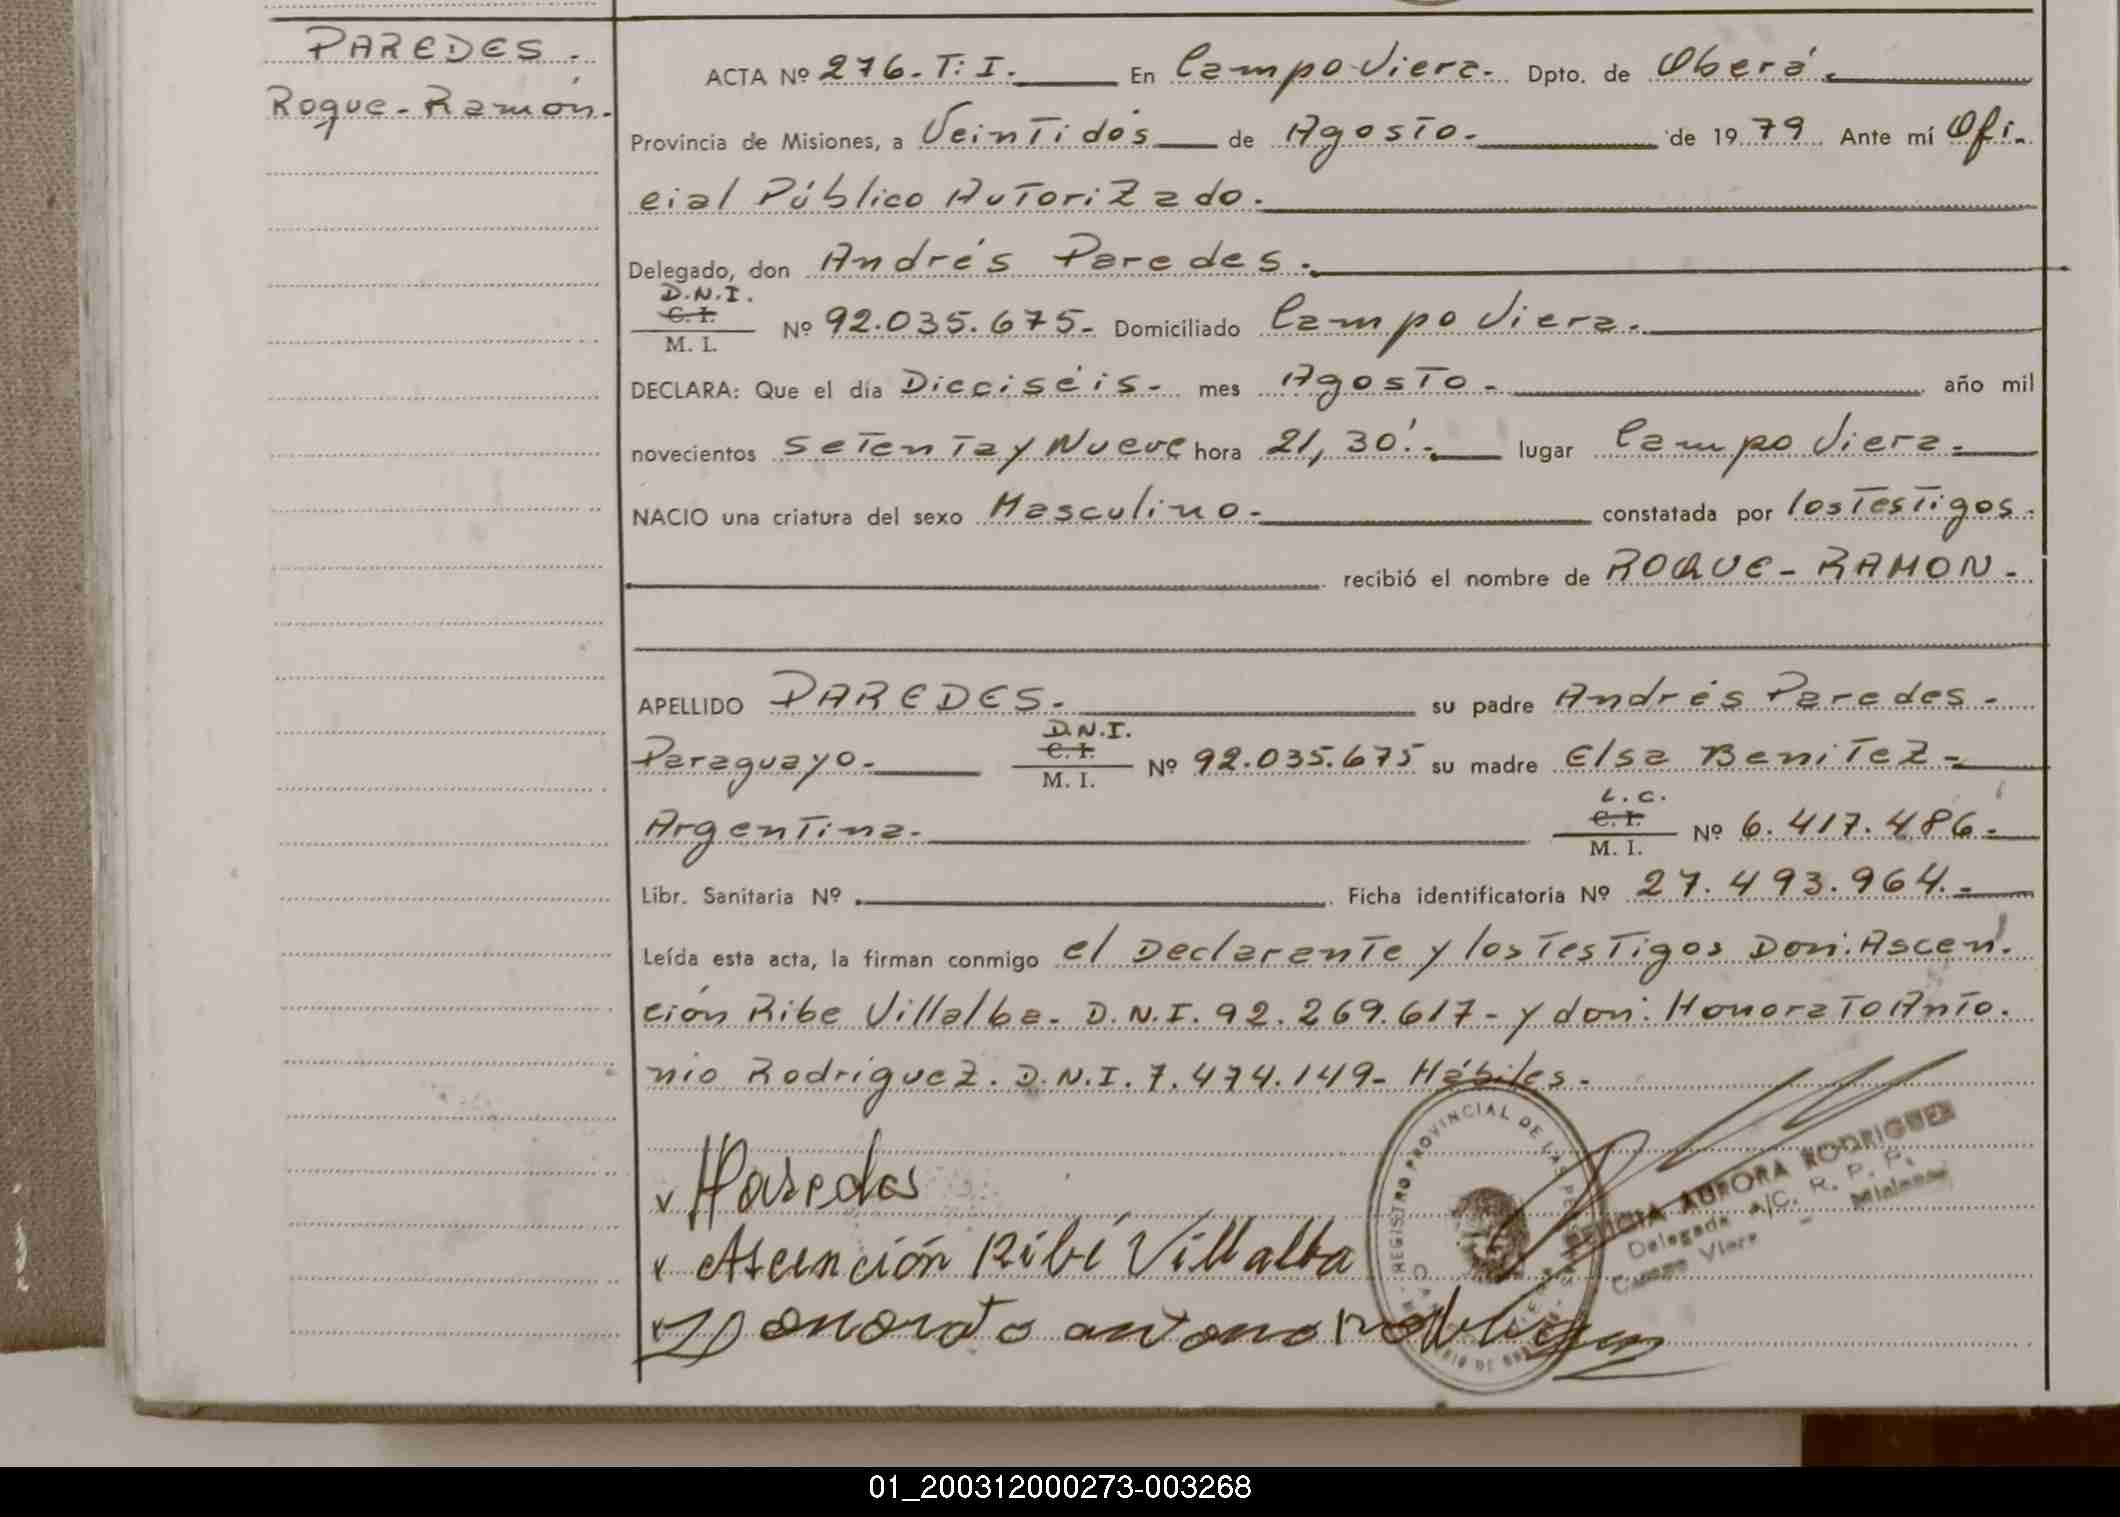 PAREDES.
Roque-Ramón.
ACTA Nº 276.T:I. En Campo Viera. Dpto. de Oberá.
Provincia de Misiones, a Veintidós de Agosto. de 1979 Ante mí Ofi.
cial Público Autorizado.
Delegado, don Andrés Paredes.
D.N.I.
C.I.
M. I. Nº 92.035.675- Domiciliado Campo Viera.
DECLARA: Que el día Dieciséis- mes Agosto- año mil
novecientos Setenta y Nueve hora 21,30'.- lugar Campo Viera.
NACIO una criatura del sexo Masculino- constatada por los Testigos.
recibió el nombre de ROQUE-RAMON-
APELLIDO PAREDES. su padre Andrés Paredes-
Paraguayo- D.N.I.
C.I.
M. I. Nº 92.035.675 su madre Elsa Benitez-
Argentina. L.C.
C.I.
M. I. Nº 6.417.486-
Libr. Sanitaria Nº Ficha identificatoria Nº 27.493.964.-
Leída esta acta, la firman conmigo el Declarante y los Testigos Don: Ascen.
ción Ribe Villalba- D.N.I. 92.269.617- y don: Honorato Anto.
nio Rodriguez. D.N.I. 7.474.149- Hábiles-
v Paredes
v Ascención Ribé Villalba
v Honorato
REGISTRO PROVINCIAL DE LAS PERSONAS
AURORA RODRIGUEZ
Delegada A/C. R. P. P.
Campo Viera - Misiones
01_200312000273-003268